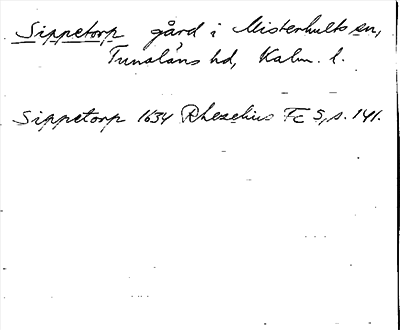 Sippetorp gård i Misterhults sn,
Tunaläns hd, Kalm. l.
Sippetorp 1634 Rhezelius Fc 5, s. 141.